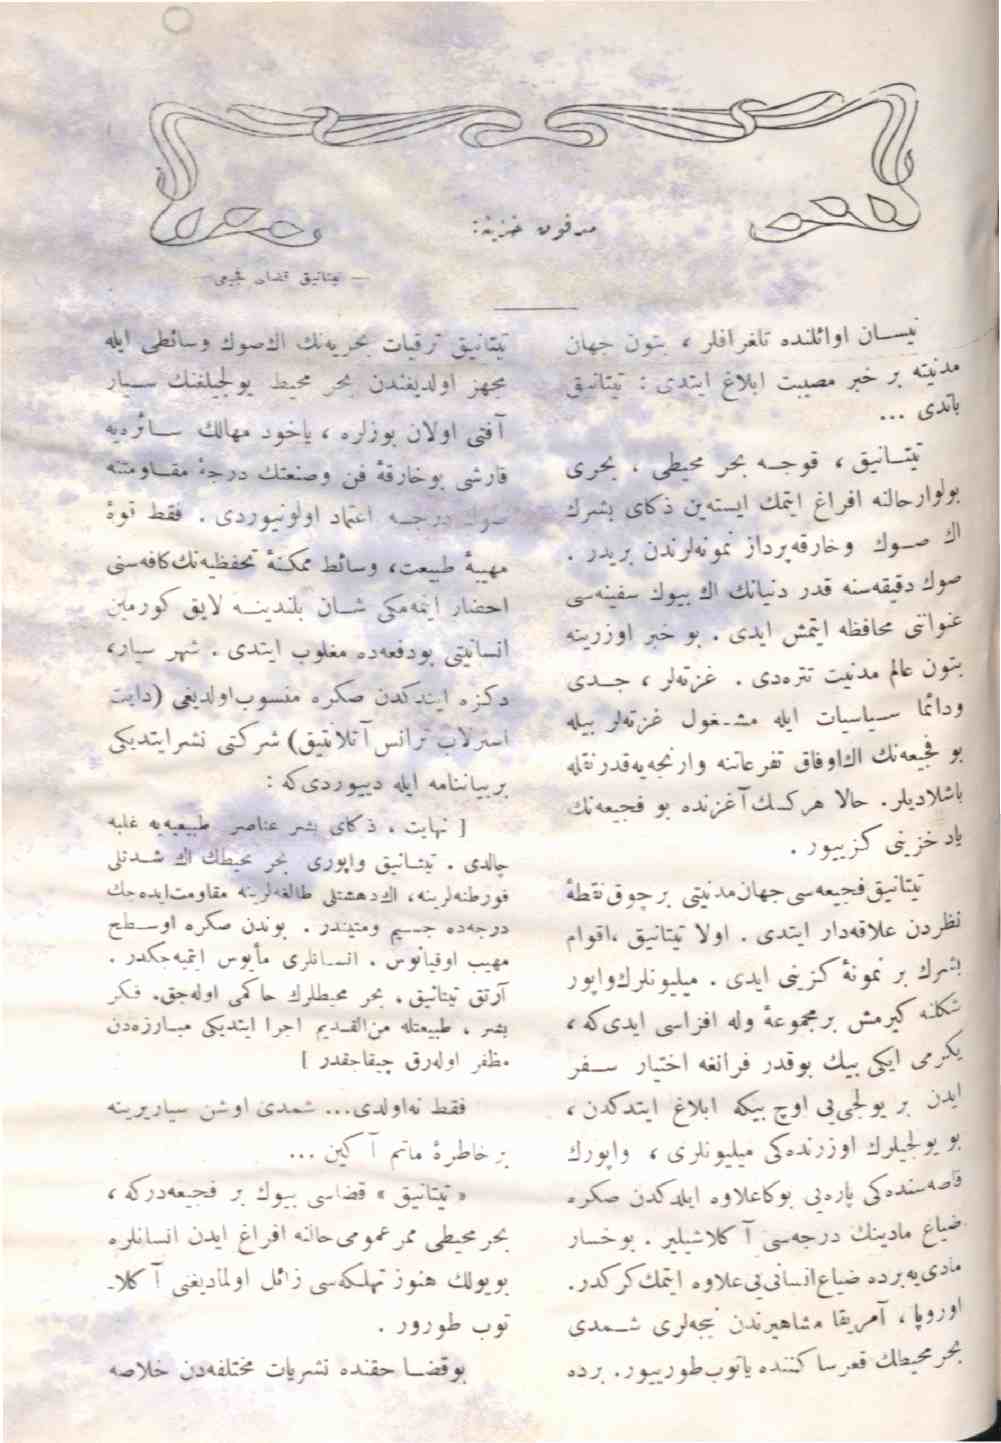 مدفون خزینه:
— تیتانیق قضای فجیعی —
نیسان اوائلنده تلغرافلر ، بتون جهان
مدنیته بر خبر مصیبت ابلاغ ایتدی : تیتانیق
باتدی ...
تیتانیق ، قوجه بحر محیطی ، بحری
بولوار حالنه افراغ ایتمك ایسته‌ین ذکای بشرك
اك صوك وخارقه‌پرداز نمونه‌لرندن بریدر .
صوك دقیقه‌سنه قدر دنیانك اك بیوك سفینه‌سی
عنواننی محافظه ایتمش ایدی . بو خبر اوزرینه
بتون عالم مدنیت تتره‌دی . غزته‌لر ، جدی
ودائما سیاسیات ایله مشغول غزته‌لر بیله
بو فجیعه‌نك اك‌اوفاق تفرعاتنه وارنجه‌یه‌قدر نقله
باشلادیلر. حالا هرکسك آغزنده بو فجیعه‌نك
یاد خزینی کزییور .
تیتانیق فجیعه‌سی جهان‌مدنیتی برچوق نقطهٔ
نظردن علاقه‌دار ایتدی . اولا تیتانیق ،اقوام
بشرك بر نمونهٔ کزینی ایدی . میلیونلرك‌واپور
شکلنه کیرمش برمجموعهٔ وله افزاسی ایدی‌که ،
یکرمی ایکی بیك بوقدر فرانغه اختیار سفر
ایدن بر یولجی‌یی اوچ بیکه ابلاغ ایتدکدن ،
بو یولجیلرك اوزرنده‌کی میلیونلری ، واپورك
قاصه‌سنده‌کی پاره‌یی بوکاعلاوه ایلدکدن صکره
ضیاع مادینك درجه‌سی آکلاشیلیر . بوخسار
مادی‌یه‌برده ضیاع‌انسانی‌یی‌علاوه ایتمك‌کرکدر.
اوروپا ، آمریقا مشاهیرندن نیجه‌لری شمدی
بحر محیطك قعر ساکننده یاتوب‌طورییور. برده
تیتانیق ترقیات بحریه‌نك اك‌صوك وسائطی ایله
مجهز اولدیغندن بحر محیط یولجیلغنك سیار
آفتی اولان بوزلره ، یاخود مهالك سائره‌یه
قارشی بوخارقهٔ فن وصنعتك درجهٔ مقاومتنه
صوك درجه اعتماد اولونیوردی . فقط قوهٔ
مهیبهٔ طبیعت، وسائط ممکنهٔ تحفظیه‌نك‌کافه‌سنی
احضار ایتمه‌مکی شان بلندینه لایق کورمین
انسانیتی بودفعه‌ده مغلوب ایتدی . شهر سیار،
دکزه ایندکدن صکره منسوب‌اولدیغی (دایت
استرلاب ترانس‌آتلانتیق) شرکتی نشرایتدیکی
بربیاننامه ایله دییوردی‌که :
[ نهایت ، ذکای بشر عناصر طبیعیه‌یه غلبه
چالدی . تیتانیق واپوری بحر محیطك اك شدتلی
فورطنه‌لرینه، اك‌دهشتلی طالغه‌لرینه مقاومت‌ایده‌جك
درجه‌ده جسیم ومتیندر . بوندن صکره اوسطح
مهیب اوقیانوس ، انسانلری مأیوس ایتمیه‌جکدر .
آرتق تیتانیق، بحر محیطلرك حاکمی اوله‌جق، فکر
بشر ، طبیعتله من‌القدیم اجرا ایتدیکی مبارزه‌دن
مظفر اوله‌رق چیقاجقدر ]
فقط نه‌اولدی... شمدی اوشن سیاریرینه
برخاطرهٔ ماتم آکین ...
« تیتانیق » قضاسی بیوك بر فجیعه‌درکه ،
بحرمحیطی ممر عمومی‌حالنه افراغ ایدن انسانلره
بویولك هنوز تهلکه‌سی زائل اولمادیغنی آکلا-
توب طورور .
بوقضا حقنده نشریات مختلفه‌دن خلاصه